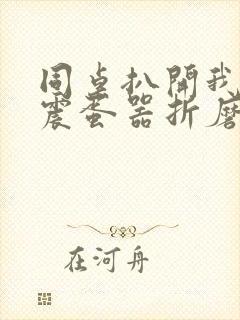 同桌扒開我
震蛋器折磨
在河舟